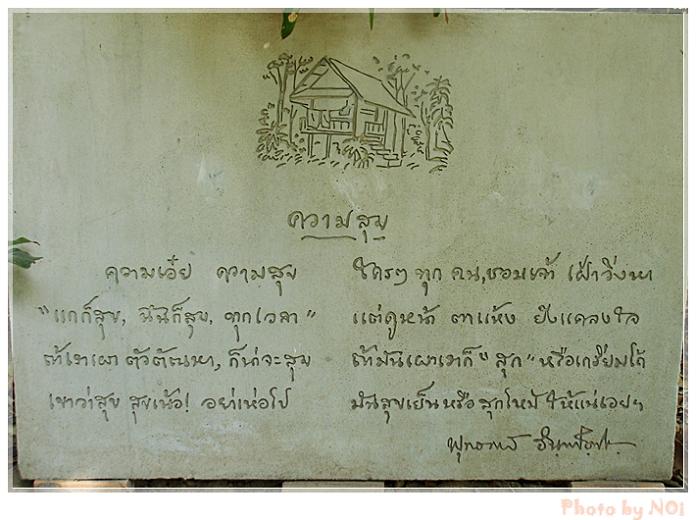 ความสุข
ความเอ๋ย ความสุข ใครๆ ทุก คน, ชอบเจ้า เฝ้าวิ่งหา
"แกก็สุข, ฉันก็สุข, ทุกเวลา" แต่ดูหน้า ตาแห้ง ยังแคลงใจ
ถ้าเราเผา ตัวตัณหา, ก็น่าจะสุข ถ้ามันเผาเราก็ "สุก" หรือเกรียมได้
เขาว่าสุข สุขเน้อ! อย่าเห่อไป มันสุขเย็น หรือ สุกไหม้ ให้แน่เอยฯ
พุทธทาส อินทปัญโญ
Photo by NOi